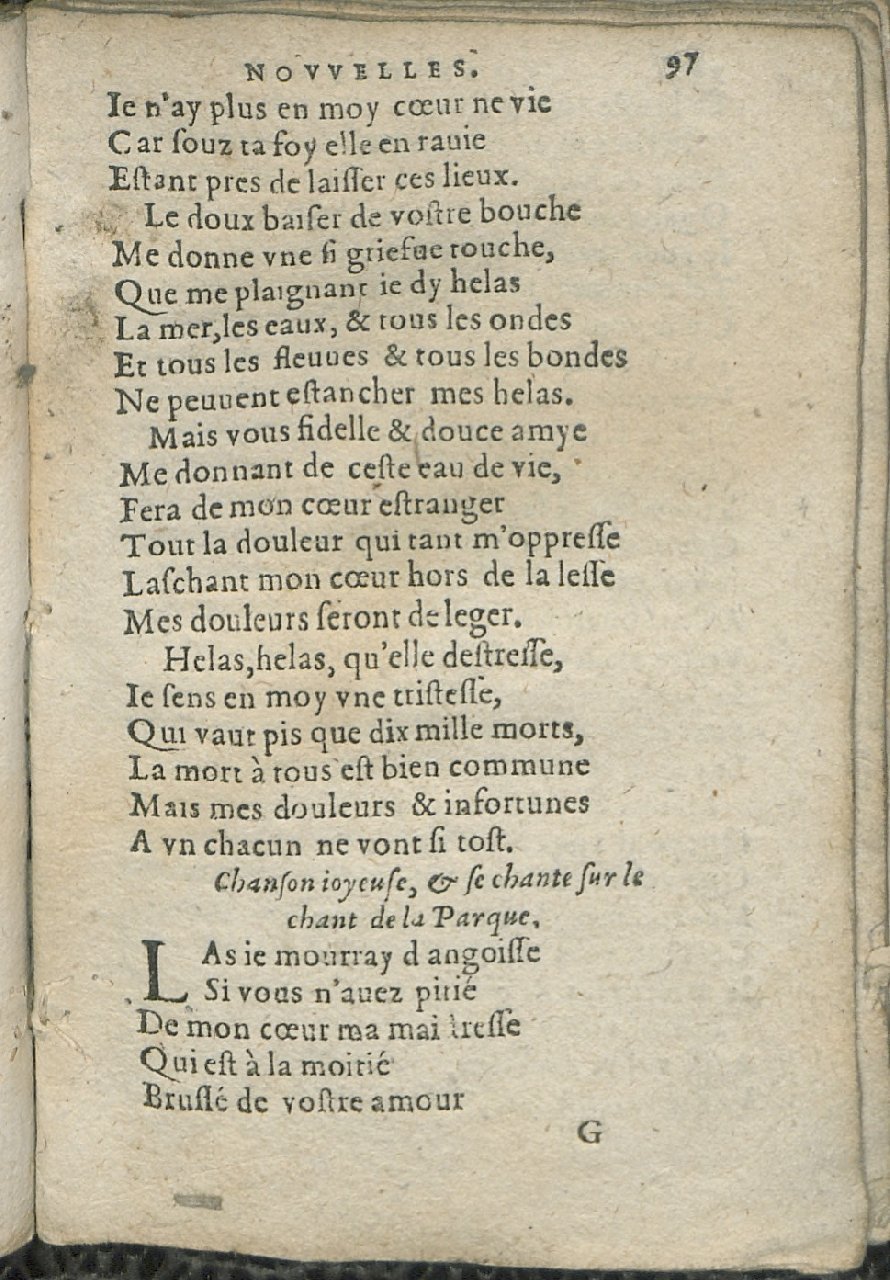 NOVVELLES. 97
Ie n'ay plus en moy cœur ne vie
Car ſouz ta foy elle en rauie
Eſtant pres de laiſſer ces lieux.
Le doux baiſer de voſtre bouche
Me donne vne ſi griefue touche,
Que me plaignant ie dy helas
La mer,les eaux, & tous les ondes
Et tous les fleuues & tous les bondes
Ne peuuent eſtancher mes helas.
Mais vous fidelle & douce amye
Me donnant de ceſte eau de vie,
Fera de mon cœur eſtranger
Tout la douleur qui tant m'oppreſſe
Laſchant mon cœur hors de la leſſe
Mes douleurs ſeront de leger.
Helas,helas, qu'elle deſtreſſe,
Ie ſens en moy vne triſteſſe,
Qui vaut pis que dix mille morts,
La mort à tous eſt bien commune
Mais mes douleurs & infortunes
A vn chacun ne vont ſi toſt.
Chanſon ioyeuſe, & ſe chante ſur le
chant de la Parque.
LAs ie mourray d angoiſſe
Si vous n'auez pitié
De mon cœur ma maitreſſe
Qui eſt à la moitié
Bruſlé de voſtre amour
G